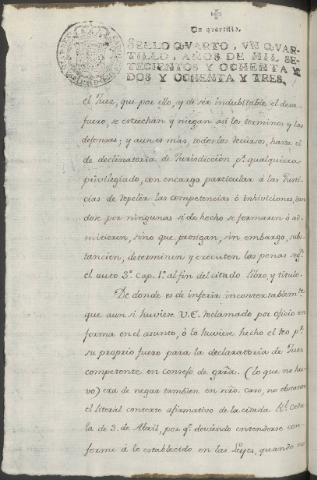 Un quartillo.
SELLO QVARTO, VN QVAR-
TILLO, AÑOS DE MIL SE-
TECIENTOS Y OCHENTA Y
DOS Y OCHENTA Y TRES.
el Juez, que por ello, y de ser indubitable el desa-
fuero, se estrechan y niegan asi los terminos y las
defensas; y aun es mas, todos los recursos, hasta el
de declinatoria de Jurisdiccion pr. qualquiera
privilegiado, con encargo particular à las Justi-
cias de repeler las competencias ò inhiviciones,
dose por ningunas si de hecho se formaren ò ad-
mitieren, sino que prosigan, sin embargo, subs-
tancien, determinen y executen las penas segn.
el auto 3º. Cap. 1º. al fin del citado libro y titulo.
De donde es de inferir incontextablemte.
que aun si huviese V.E. reclamado por oficio en
forma en el asunto, ò lo huviese hecho el reo pr.
su proprio fuero para la declaratoria de Juez
competente en consejo de grâa. (lo que no hu-
vo) era de negar tambien en ntro. caso, no obstante
el literal contexto afirmativo de la citada Rl. Cedu-
la de 3. de Abril, por qe. deviendo entenderse con-
forme à lo establecido en las Leyes, quando no